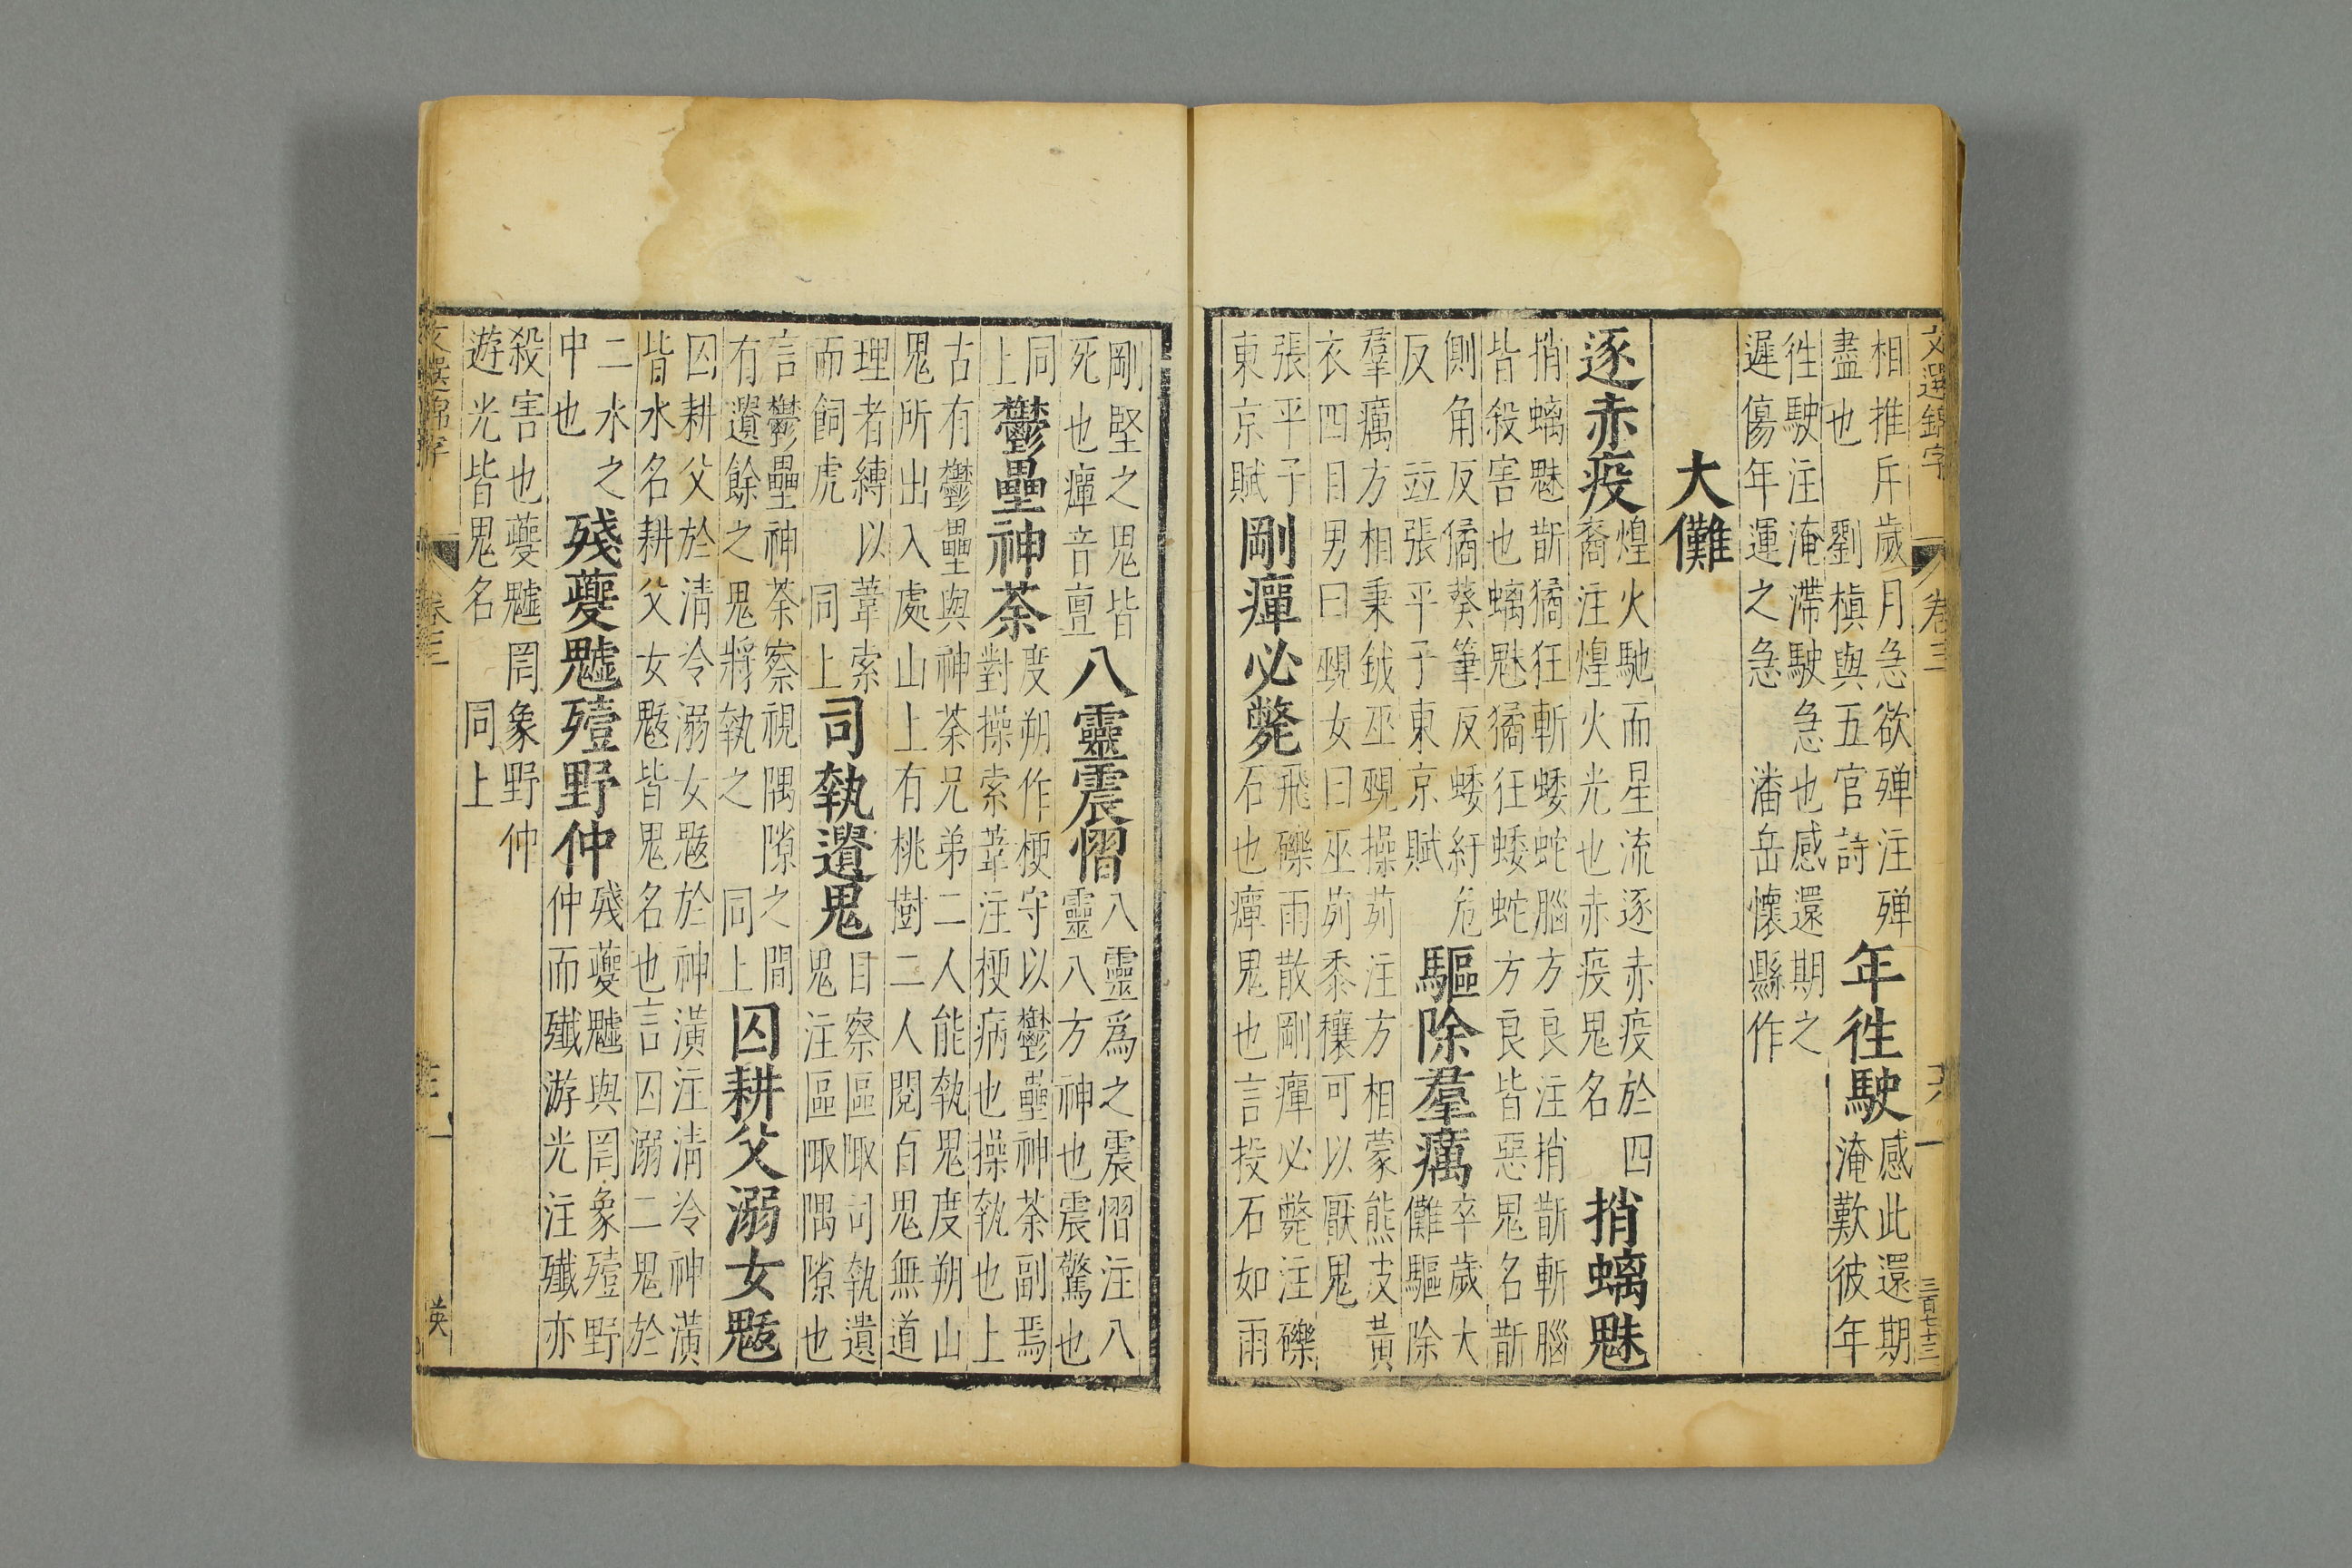 文選錦字 卷三 六 三百七十三
相推斥歲月急欲殫注殫
盡也 劉楨與五官詩
年徃駛
感此還期
淹歎彼年
徃駛注淹滯駛急也感還期之
遲傷年運之急 潘岳懷縣作
大儺
逐赤疫
煌火馳而星流逐赤疫於四
裔注煌火光也赤疫鬼名
捎螭魅
捎螭魅斮獝狂斬蜲蛇腦方良注捎斮斬腦
皆殺害也螭魅獝狂蜲蛇方良皆惡鬼名斮
側角反獝葵筆反蜲紆危
反 竝張平子東京賦
驅除羣癘
卒歲大
儺驅除
羣癘方相秉鉞巫覡操茢注方相蒙熊皮黃
衣四目男曰覡女曰巫茢黍穰可以厭鬼
張平子
東京賦
剛癉必斃
飛礫雨散剛癉必斃注礫
石也癉鬼也言投石如雨
剛堅之鬼皆
死也癉音亶
八靈震慴
八靈爲之震慴注八
靈八方神也震驚也
同
上
鬱壘神荼
度朔作梗守以鬱壘神荼副焉
對操索葦注梗病也操執也上
古有鬱壘與神荼兄弟二人能執鬼度朔山
鬼所出入處山上有桃樹二人閱百鬼無道
理者縛以葦索
而飼虎 同上
司執遺鬼
目察區陬司執遺
鬼注區陬隅隙也
言鬱壘神荼察視隅隙之間
有遺餘之鬼將執之 同上
囚耕父溺女魃
囚耕父於清冷溺女魃於神潢注清冷神潢
皆水名耕父女魃皆鬼名也言囚溺二鬼於
二水之
中也
殘夔魖殪野仲
殘夔魖與罔象殪野
仲而殲游光注殲亦
殺害也夔魖罔象野仲
遊光皆鬼名 同上
文選錦字 卷三 英